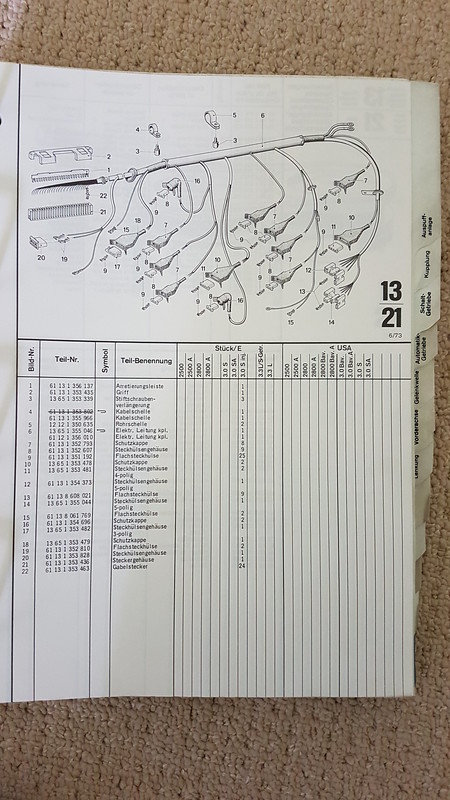 13
21
6/73
Bild-Nr.
Teil-Nr.
Symbol
Teil-Benennung
Stück/E
USA
2500
2500 A
2800
2800 A
3.0 S
3.0 SA
3.0 S inj.
3.3 L
2500
2500 A
2800
2800 A
2800 Bav.
2800 Bav. A
3.0 Bav.
3.0 Bav. A
3.0 S
3.0 SA
1 61 13 1 356 137 Arretierungsleiste 1
2 61 13 1 353 435 Griff 1
3 13 65 1 353 339 Stiftschrauben- 3
verlängerung
4 61 13 1 353 802 Kabelschelle 1
61 13 1 355 966 Kabelschelle 1
5 12 12 1 350 635 Rohrschelle 2
6 13 65 1 355 046 Elektr. Leitung kpl. 1
61 12 1 356 010 Elektr. Leitung kpl. 1
7 61 13 1 352 793 Schutzkappe 8
8 61 13 1 352 607 Steckhülsengehäuse 9
9 61 13 1 351 192 Flachsteckhülse 25
10 13 65 1 353 478 Schutzkappe 2
11 13 65 1 353 481 Steckhülsengehäuse 2
4-polig
12 61 13 1 354 373 Steckhülsengehäuse 1
5-polig
13 61 13 8 608 021 Flachsteckhülse 9
14 13 65 1 355 044 Steckhülsengehäuse 1
5-polig
15 61 13 8 061 769 Flachsteckhülse 2
16 61 13 1 354 696 Schutzkappe 2
17 13 65 1 353 482 Steckhülsengehäuse 1
3-polig
18 13 65 1 353 479 Schutzkappe 1
19 61 13 1 352 810 Flachsteckhülse 2
20 61 13 1 353 828 Steckhülsengehäuse 1
21 13 65 1 353 436 Steckergehäuse 1
22 61 13 1 353 463 Gabelstecker 24
Auspuff-
anlage
Kupplung
Schalt-
Getriebe
Automatik-
Getriebe
Gelenkwelle
Vorderachse
Lenkung